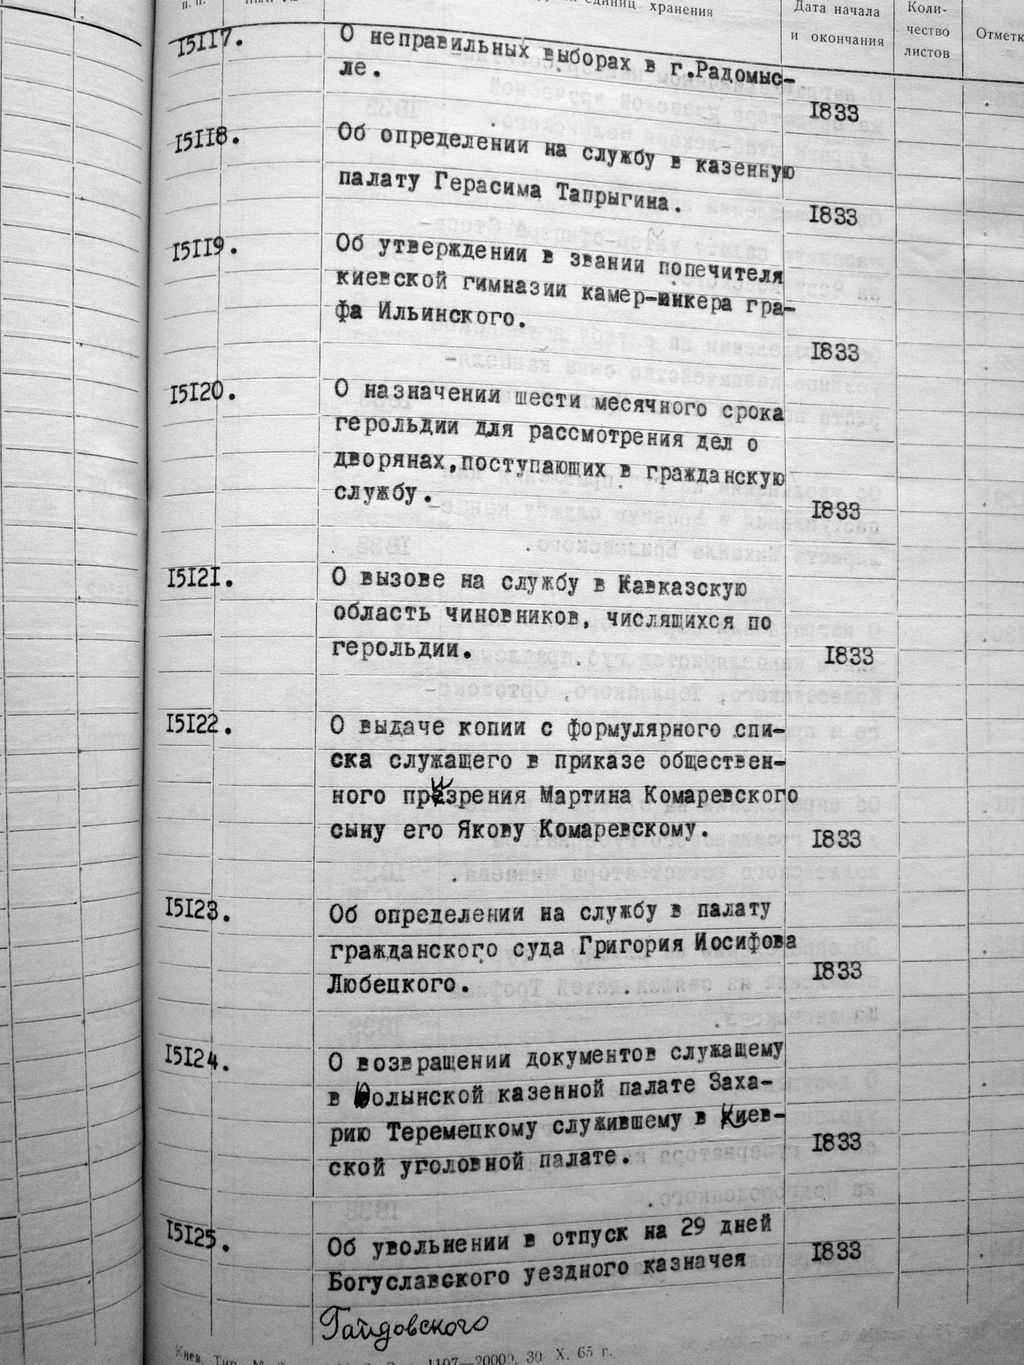 п. п.
единиц хранения
Дата начала
и окончания
Коли-
чество
листов
Отметк
15117.
О неправильных выборах в г.Радомыс-
ле.
1833
15118.
Об определении на службу в казенную
палату Герасима Тапрыгина.
1833
15119.
Об утверждении в звании попечителя
киевской гимназии камер-юнкера гра-
фа Ильинского.
1833
15120.
О назначении шести месячного срока
герольдии для рассмотрения дел о
дворянах,поступающих в гражданскую
службу.
1833
15121.
О вызове на службу в Кавказскую
область чиновников, числящихся по
герольдии.
1833
15122.
О выдаче копии с формулярного спи-
ска служащего в приказе обществен-
ного призрения Мартина Комаревского
сыну его Якову Комаревскому.
1833
15123.
Об определении на службу в палату
гражданского суда Григория Иосифова
Любецкого.
1833
15124.
О возвращении документов служащему
в Волынской казенной палате Заха-
рию Теремецкому служившему в Киев-
ской уголовной палате.
1833
15125.
Об увольнении в отпуск на 29 дней
Богуславского уездного казначея
1833
Гайдовского
Киев. Тип. 1107—20000. 30 X. 65 г.